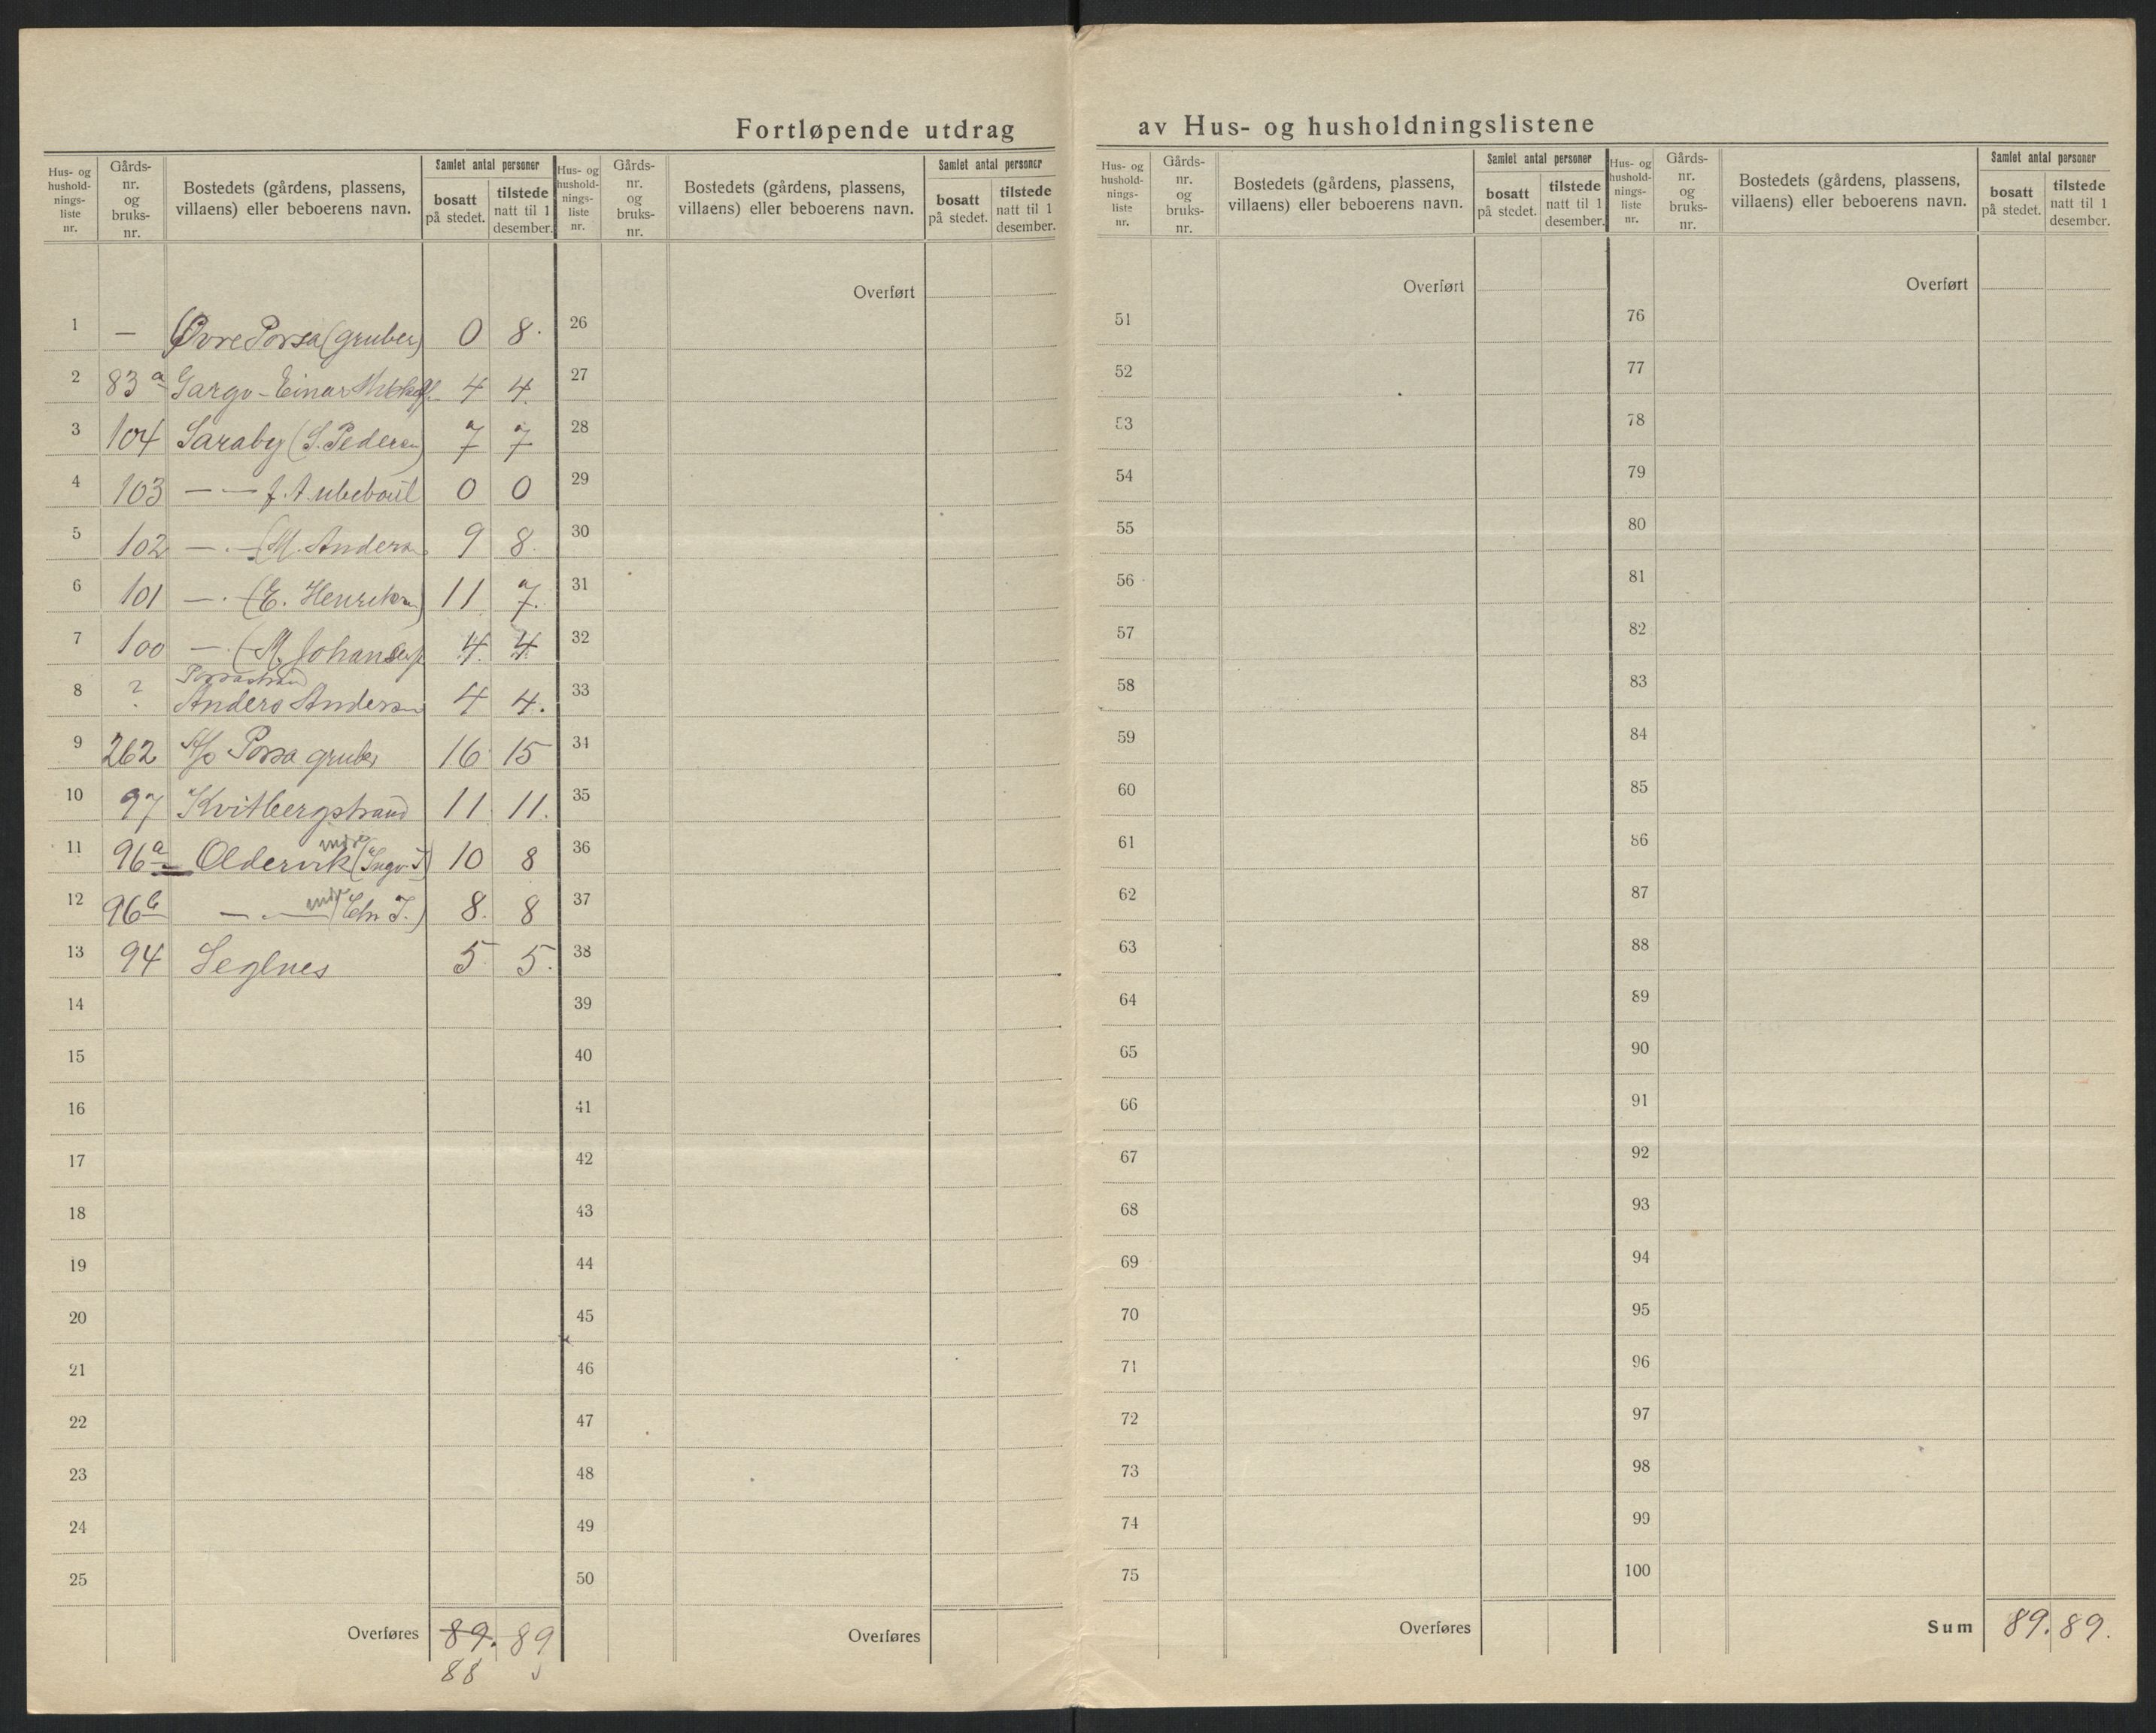 Fortløpende utdrag av Hus- og husholdningslistene
Hus- og hushold-nings-liste nr. Gårds-nr. og bruks-nr. Bostedets (gårdens, plassens, villaens) eller beboerens navn. Samlet antal personer bosatt på stedet. tilstede natt til 1 desember.
Hus- og hushold-nings-liste nr. Gårds-nr. og bruks-nr. Bostedets (gårdens, plassens, villaens) eller beboerens navn. Samlet antal personer bosatt på stedet. tilstede natt til 1 desember.
Hus- og hushold-nings-liste nr. Gårds-nr. og bruks-nr. Bostedets (gårdens, plassens, villaens) eller beboerens navn. Samlet antal personer bosatt på stedet. tilstede natt til 1 desember.
Hus- og hushold-nings-liste nr. Gårds-nr. og bruks-nr. Bostedets (gårdens, plassens, villaens) eller beboerens navn. Samlet antal personer bosatt på stedet. tilstede natt til 1 desember.
1 — Øvre Porsa (gruber) 0 8.
2 83a Gargo - Einar 4 4.
3 104 Saraby (S. Pedersen) 7 7
4 103 — — f. A. ubeboet 0 0
5 102 — . — (M. Andersen 9 8.
6 101 — . (E. Henriksen) 11 7.
7 100 — . (M. Johansen) 4. 4
Porsastrand
8 ? Anders Andersen 4 4.
9 262 A/S Porsa gruber 16 15
10 97 Kvitbergstrand 11. 11.
indre
11 96a Oldervik (Ingv. J) 10 8
indre
12 96b — . — (Chr J.) 8. 8
13 94 Seglnes 5 5.
14
15
16
17
18
19
20
21
22
23
24
25
Overføres 89. 89
88
Overført
26
27
28
29
30
31
32
33
34
35
36
37
38
39
40
41
42
43
44
45
46
47
48
49
50
Overføres
Overført
51
52
53
54
55
56
57
58
59
60
61
62
63
64
65
66
67
68
69
70
71
72
73
74
75
Overføres
Overført
76
77
78
79
80
81
82
83
84
85
86
87
88
89
90
91
92
93
94
95
96
97
98
99
100
Sum 89. 89.